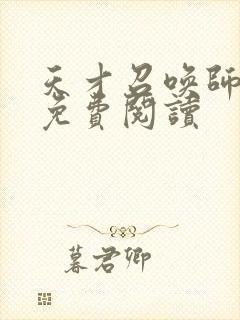 天才召喚師
免費閱讀
暮君卿